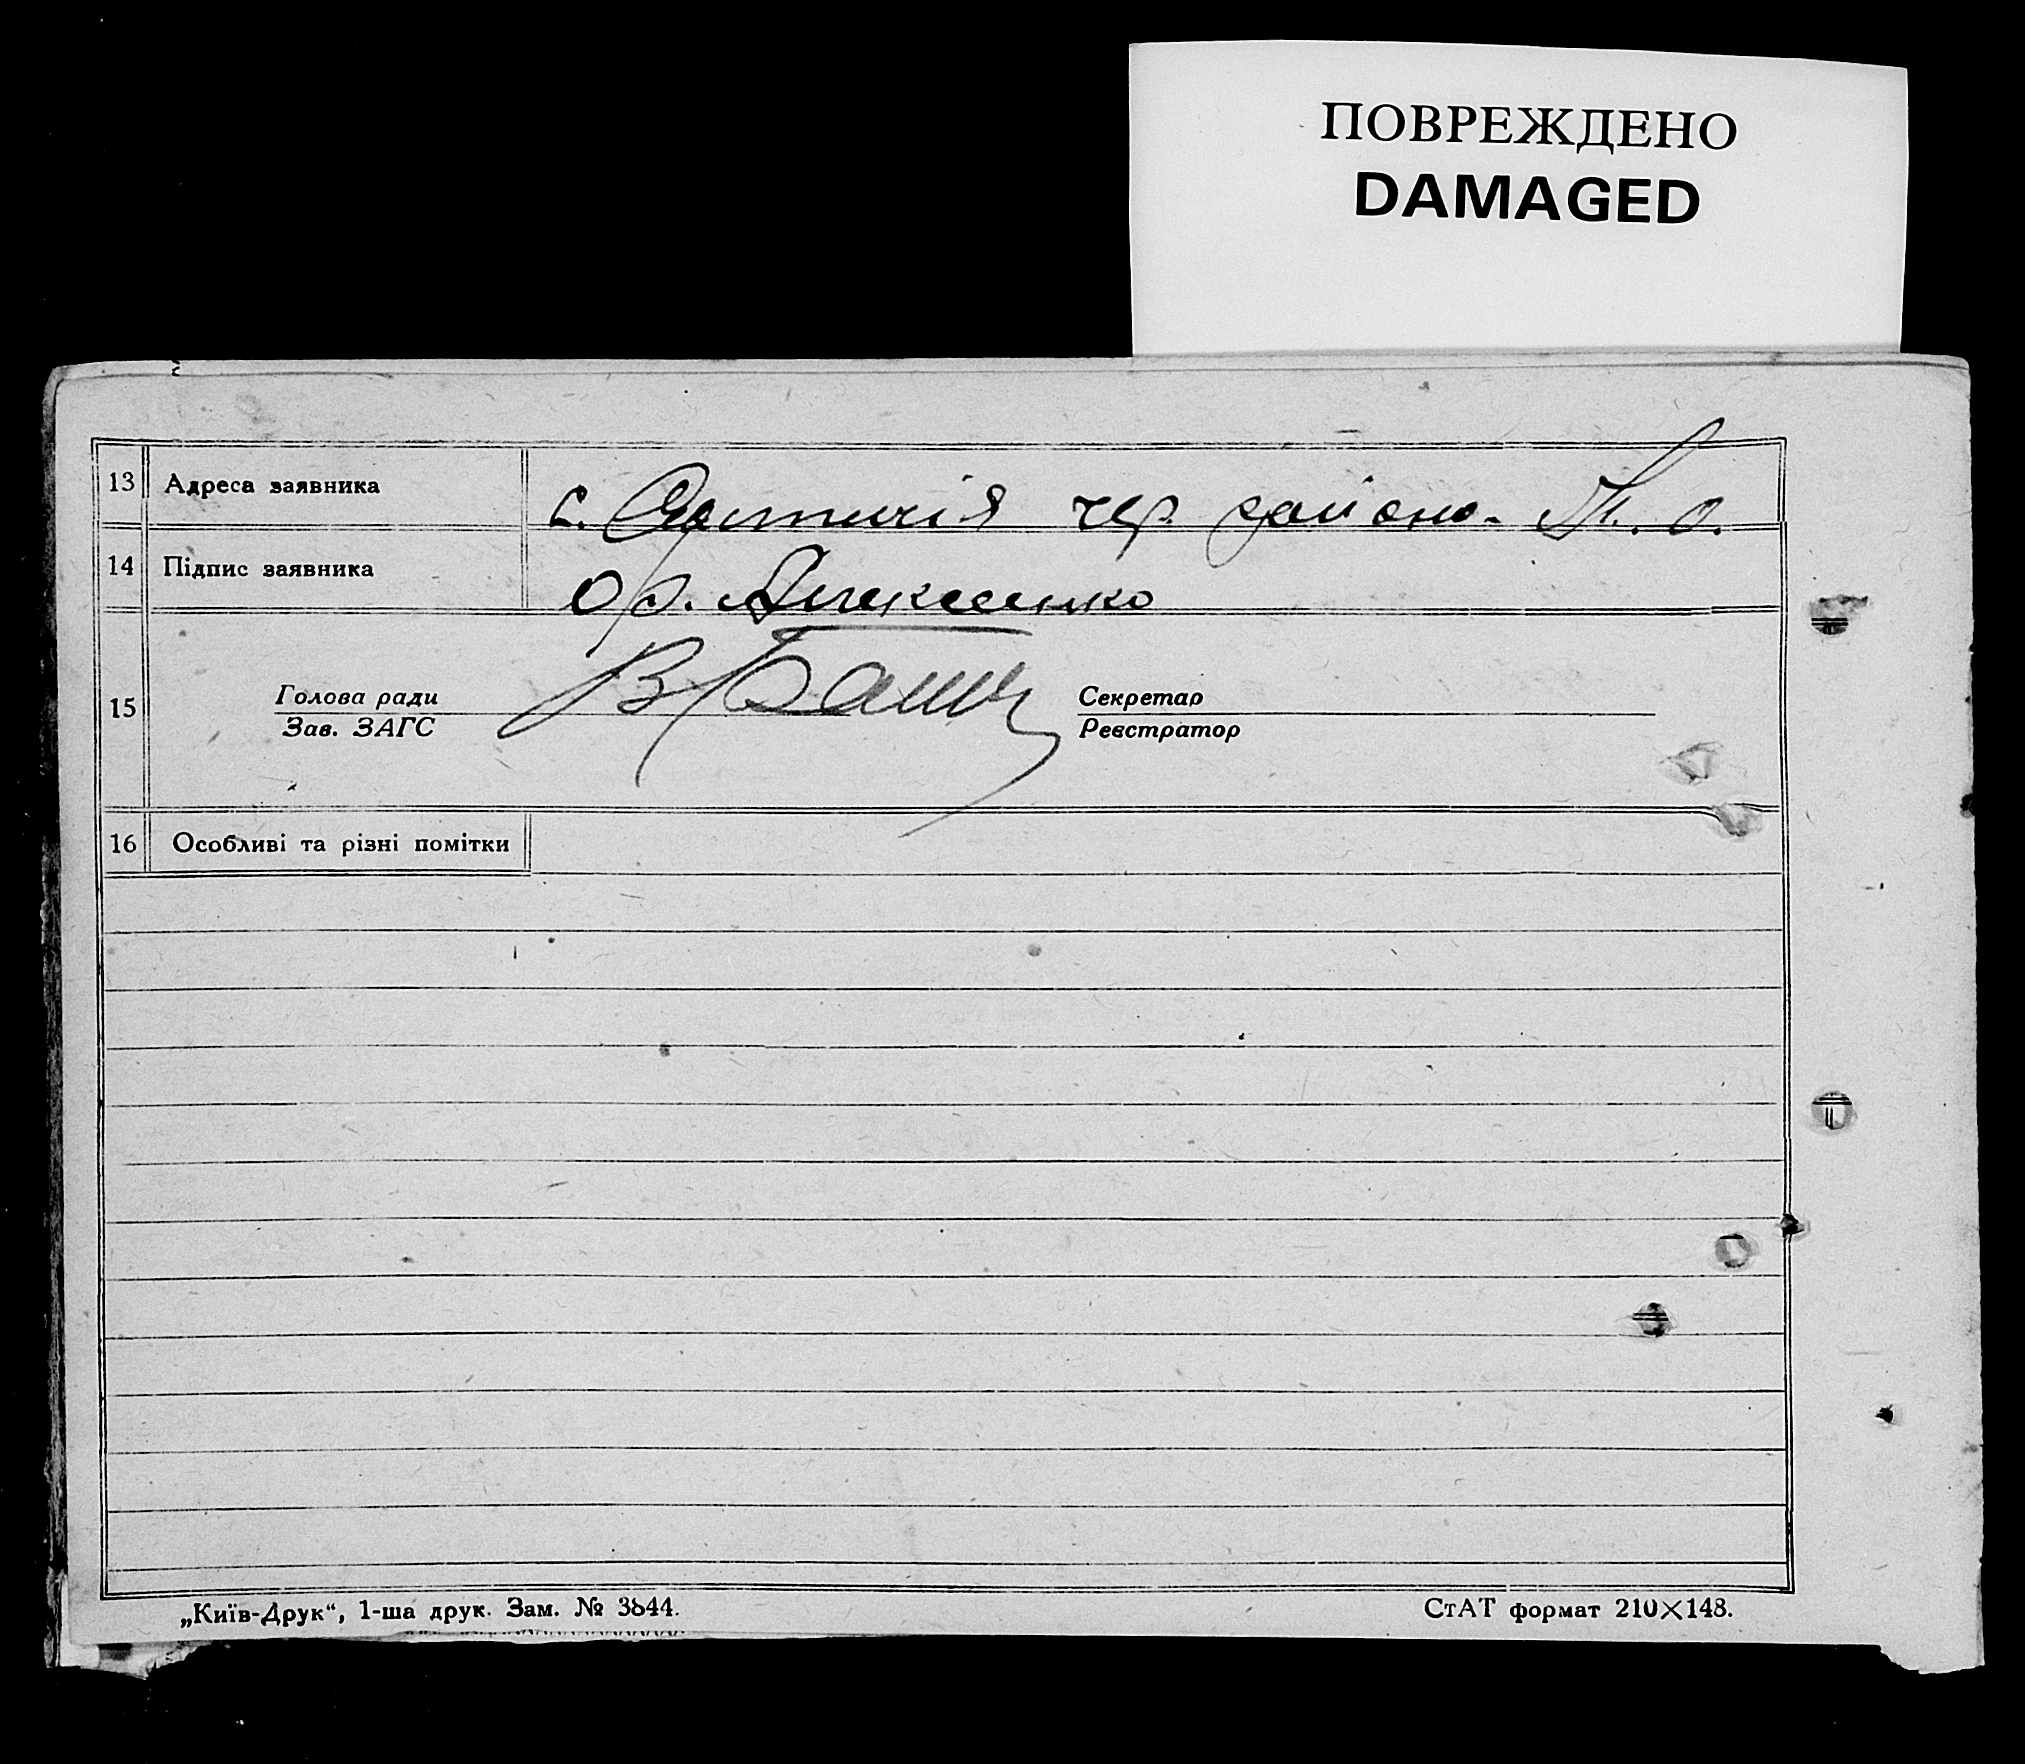 ПОВРЕЖДЕНО
DAMAGED
13 Адреса заявника с. чер району. К. о.
14 Підпис заявника Ор. Алексеенко
15 Голова ради Секретар
Зав. ЗАГС Реєстратор
16 Особливі та різні помітки
„Київ-Друк“, 1-ша друк. Зам. № 3844. СтАТ формат 210×148.